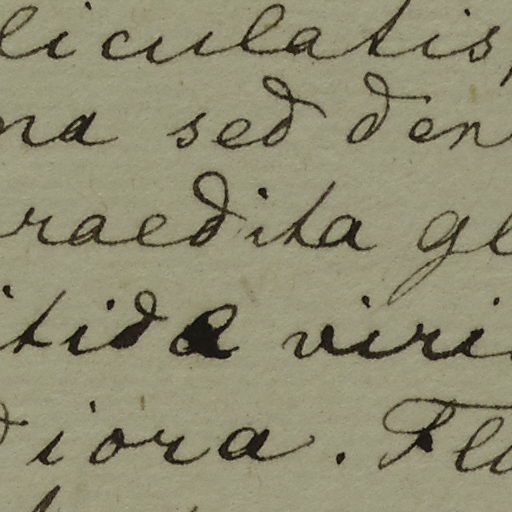 liculatis,
na sed den
raedita gl
itide viri
diora. Flo